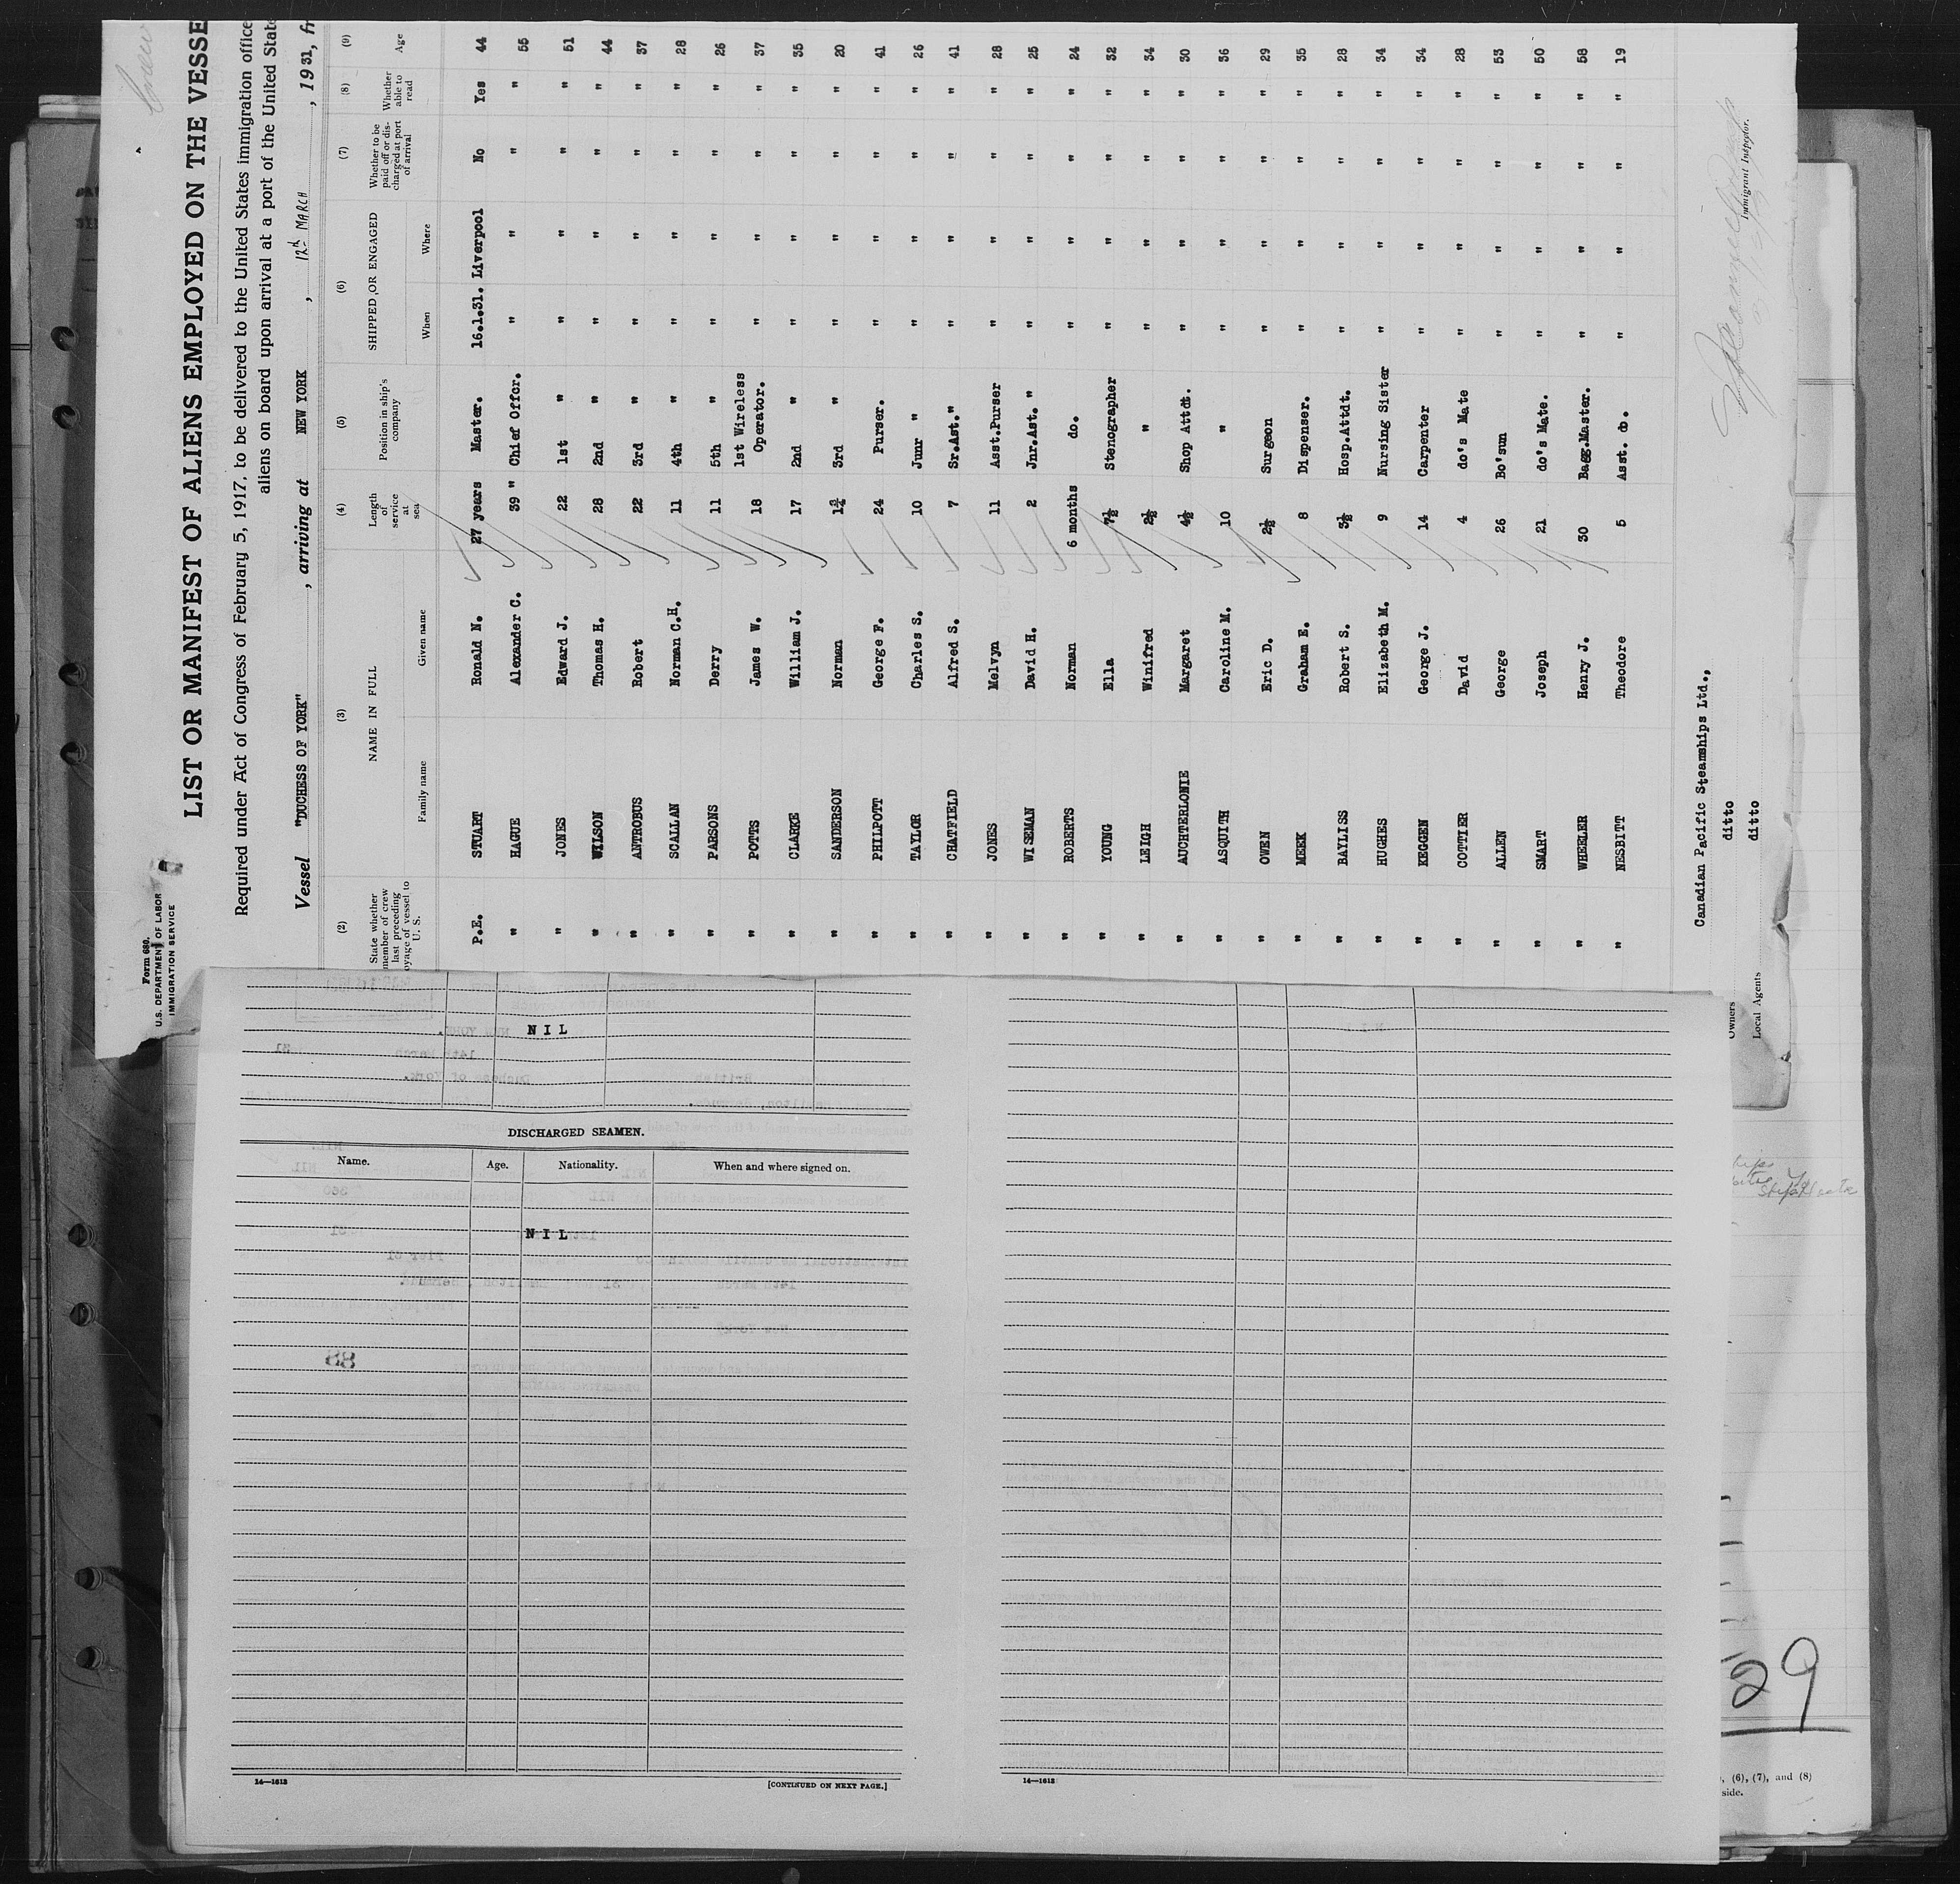 Form 680.
U.S. DEPARTMENT OF LABOR
IMMIGRATION SERVICE
Crew
LIST OR MANIFEST OF ALIENS EMPLOYED ON THE VESSE
Required under Act of Congress of February 5, 1917, to be delivered to the United States immigration office
aliens on board upon arrival at a port of the United Stat
Vessel "DUCHESS OF YORK", arriving at NEW YORK, 12th MARCH, 1931, fr
(2) (3) (4) (5) (6) (7) (8) (9)
State whether member of crew last preceding oyage of vessel to U. S. NAME IN FULL Length of service at sea Position in ship's company SHIPPED OR ENGAGED Whether to be paid off or discharged at port of arrival Whether able to read Age
Family name Given name When Where
P.E. STUART Ronald N. 27 years Master. 16.1.31. Liverpool No Yes 44
" HAGUE Alexander C. 39 " Chief Offcr. " " " " 55
" JONES Edward J. 22 1st " " " " " 51
" WILSON Thomas H. 28 2nd " " " " " 44
" ANTROBUS Robert 22 3rd " " " " " 37
" SCALLAN Norman C.H. 11 4th " " " " " 28
" PARSONS Derry 11 5th " " " " " 26
" POTTS James W. 18 1st Wireless Operator. " " " " 37
" CLARKE William J. 17 2nd " " " " " 35
" SANDERSON Norman 1¾ 3rd " " " " " 20
" PHILPOTT George F. 24 Purser. " " " " 41
" TAYLOR Charles S. 10 Junr " " " " " 26
" CHATFIELD Alfred S. 7 Sr.Ast." " " " " 41
" JONES Melvyn 11 Asst.Purser " " " " 28
" WISEMAN David H. 2 Jnr.Ast. " " " " " 25
" ROBERTS Norman 6 months do. " " " " 24
" YOUNG Ella 7½ Stenographer " " " " 32
" LEIGH Winifred 2½ " " " " " 34
" AUCHTERLONIE Margaret 4½ Shop Attdt. " " " " 30
" ASQUITH Caroline M. 10 " " " " " 36
" OWEN Eric D. 2½ Surgeon " " " " 29
" MEEK Graham E. 8 Dispenser. " " " " 35
" BAYLISS Robert S. 3½ Hosp.Attdt. " " " " 28
" HUGHES Elizabeth M. 9 Nursing Sister " " " " 34
" KEGGEN George J. 14 Carpenter " " " " 34
" COTTIER David 4 do's Mate " " " " 28
" ALLEN George 26 Bo'sun " " " " 53
" SMART Joseph 21 do's Mate. " " " " 50
" WHEELER Henry J. 30 Bagg.Master. " " " " 58
" NESBITT Theodore 5 Asst. do. " " " " 19
Canadian Pacific Steamships Ltd.,
Owners ditto
Local Agents ditto
Immigrant Inspector.
NIL
DISCHARGED SEAMEN.
Name. Age. Nationality. When and where signed on.
NIL
14—1613
[CONTINUED ON NEXT PAGE.]
14—1613
29
, (6), (7), and (8)
side.